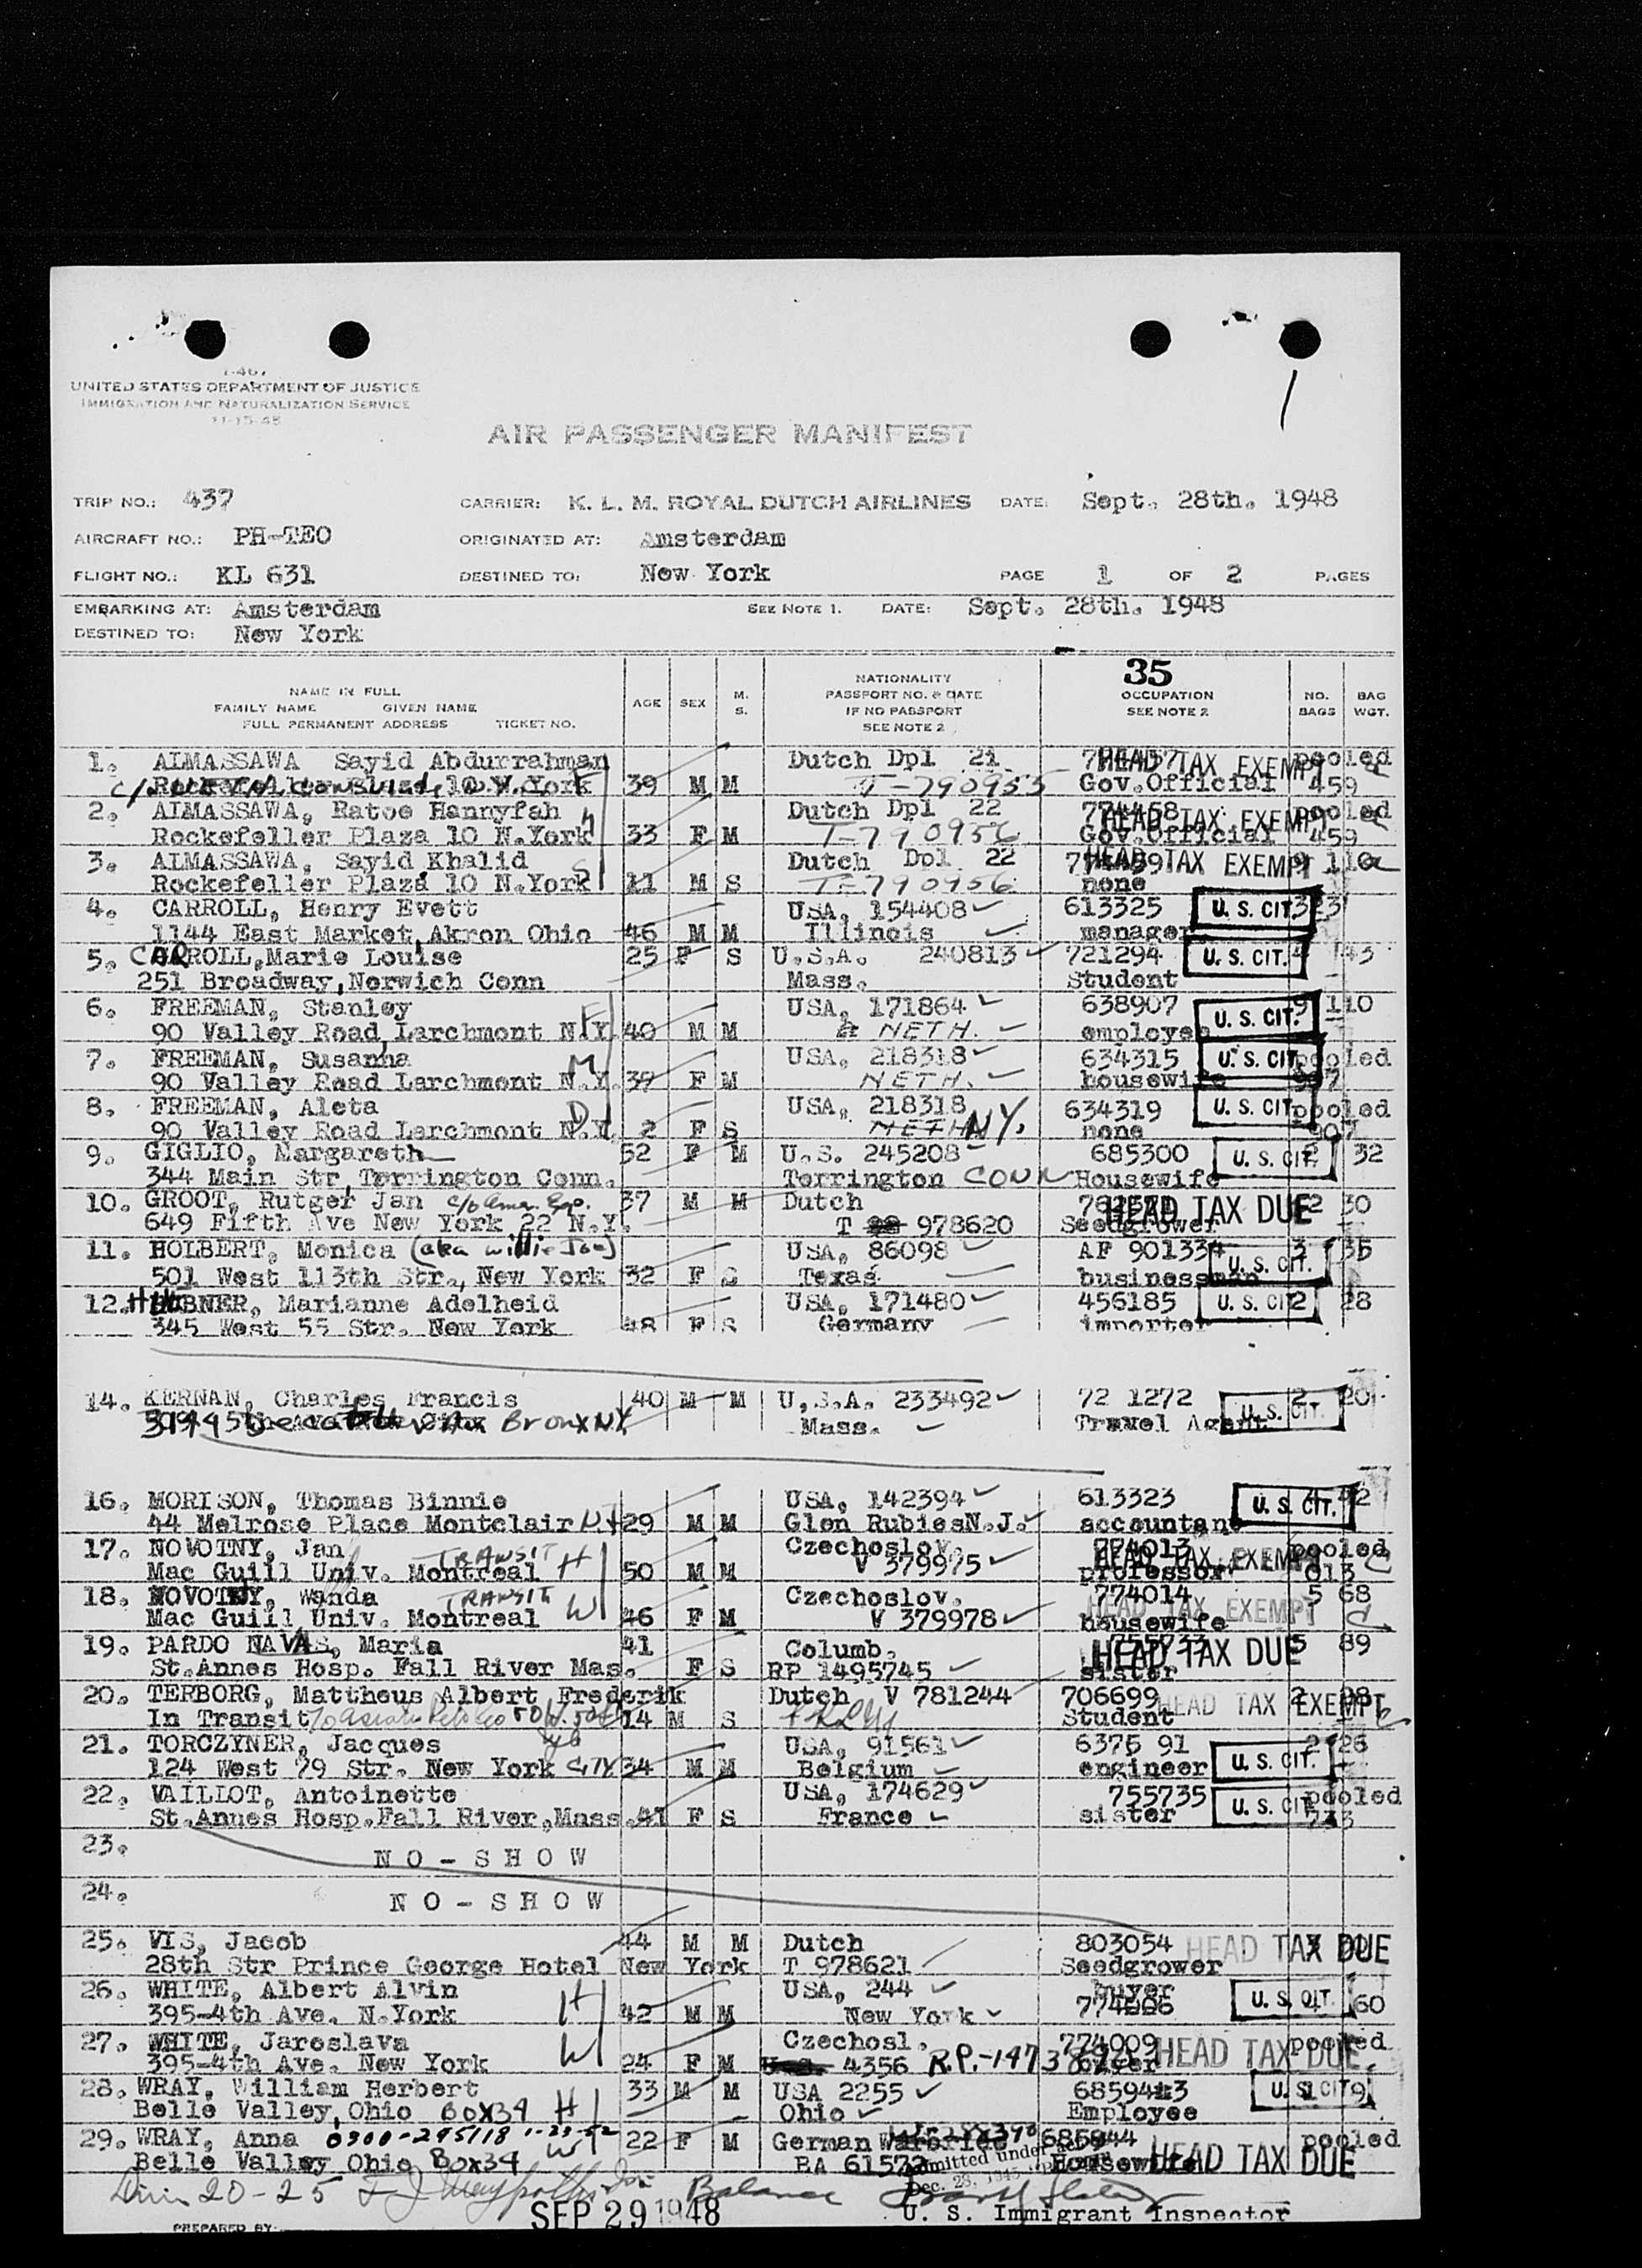 UNITED STATES DEPARTMENT OF JUSTICE
IMMIGRATION AND NATURALIZATION SERVICE
11-15-45
AIR PASSENGER MANIFEST
TRIP NO.: 437 CARRIER: K. L. M. ROYAL DUTCH AIRLINES DATE: Sept. 28th. 1948
AIRCRAFT NO.: PH-TEO ORIGINATED AT: Amsterdam
FLIGHT NO.: KL 631 DESTINED TO: New York PAGE 1 OF 2 PAGES
EMBARKING AT: Amsterdam SEE NOTE 1. DATE: Sept. 28th. 1948
DESTINED TO: New York
35
NAME IN FULL
FAMILY NAME GIVEN NAME
FULL PERMANENT ADDRESS TICKET NO.
AGE SEX M. S.
NATIONALITY
PASSPORT NO. & DATE
IF NO PASSPORT
SEE NOTE 2
OCCUPATION
SEE NOTE 2
NO. BAGS
BAG WGT.
1. ALMASSAWA Sayid Abdurrahman Dutch Dpl 21 HEAD TAX EXEMPT pooled
10 N.York 39 M M T-790955 Gov.Official 459
2. ALMASSAWA, Ratoe Hannyfah Dutch Dpl 22 774458 HEAD TAX EXEMPT pooled
Rockefeller Plaza 10 N.York 33 F M T-790956 Gov.Official 459
3. ALMASSAWA, Sayid Khalid Dutch Dpl 22 HEAD TAX EXEMPT 9 110
Rockefeller Plaza 10 N.York S 11 M S T-790956 none
4. CARROLL, Henry Evett USA, 154408 613325 U. S. CIT.
1144 East Market, Akron Ohio 46 M M Illinois manager
5. CARROLL, Marie Louise 25 F S U.S.A. 240813 721294 U. S. CIT. 43
251 Broadway, Norwich Conn Mass. Student
6. FREEMAN, Stanley USA, 171864 638907 U. S. CIT. 9 110
90 Valley Road, Larchmont N.Y. 40 M M NETH. employee
7. FREEMAN, Susanna USA, 218318 634315 U. S. CIT. pooled
90 Valley Road Larchmont N.Y. 39 F M NETH. housewife 907
8. FREEMAN, Aleta USA, 218318 634319 U. S. CIT. pooled
90 Valley Road Larchmont N.Y. 2 F S NETH NY. none 907
9. GIGLIO, Margareth 52 F M U.S. 245208 685300 U. S. CIT. 2 32
344 Main Str, Torrington Conn. Torrington CONN Housewife
10. GROOT, Rutger Jan c/o Amer. Exp. 37 M M Dutch HEAD TAX DUE 2 30
649 Fifth Ave New York 22 N.Y. T 978620 Seedgrower
11. HOLBERT, Monica (aka Willie Jon) USA, 86098 AF 901334 U. S. CIT. 3 35
501 West 113th Str., New York 32 F S Texas businessman
12. HUEBNER, Marianne Adelheid USA, 171480 456185 U. S. CIT. 2 28
345 West 55 Str. New York 48 F S Germany importer
14. KERNAN, Charles Francis 40 M M U.S.A. 233492 72 1272 U. S. CIT. 2 20
Decatur Bronx NY Mass. Travel Agent
16. MORISON, Thomas Binnie USA, 142394 613323 U. S. CIT. 42
44 Melrose Place Montclair NJ 29 M M Glen Rubies N.J. accountant
17. NOVOTNY, Jan TRANSIT H Czechoslov. 774013 HEAD TAX EXEMPT pooled
Mac Guill Univ. Montreal 50 M M V 379975 professor 013
18. NOVOTNY, Wanda TRANSIT W Czechoslov. 774014 HEAD TAX EXEMPT 5 68
Mac Guill Univ. Montreal 46 F M V 379978 housewife
19. PARDO NAVAS, Maria 41 Columb. 755733 HEAD TAX DUE 5 89
St.Annes Hosp. Fall River Mas. F S RP 1495745 sister
20. TERBORG, Mattheus Albert Frederik Dutch V 781244 706699 HEAD TAX EXEMPT 2 28
In Transit 14 M S Student
21. TORCZYNER, Jacques USA, 91561 6375 91 U. S. CIT. 2 26
124 West 79 Str. New York CITY 34 M M Belgium engineer
22. VAILLOT, Antoinette USA, 174629 755735 U. S. CIT. pooled
St.Annes Hosp.Fall River,Mass. 41 F S France sister 733
23. NO-SHOW
24. NO-SHOW
25. VIS, Jacob 44 M M Dutch 803054 HEAD TAX DUE
28th Str Prince George Hotel New York T 978621 Seedgrower
26. WHITE, Albert Alvin H USA, 244 buyer U. S. CIT. 60
395-4th Ave. N.York 42 M M New York 774006
27. WHITE, Jaroslava W Czechosl. 774009 HEAD TAX DUE pooled
395-4th Ave. New York 24 F M 4356 R.P.-
28. WRAY, William Herbert 33 M M USA 2255 U. S. CIT.
Belle Valley, Ohio BOX 34 H Ohio Employee
29. WRAY, Anna 0300-295118 1-23-52 22 F M German Warbride 685944 pooled
Belle Valley Ohio Box 34 W BA Admitted under Housewife HEAD TAX DUE
Dec. 28, 1945
20-25 Balance
SEP 29 1948
U. S. Immigrant Inspector
PREPARED BY: